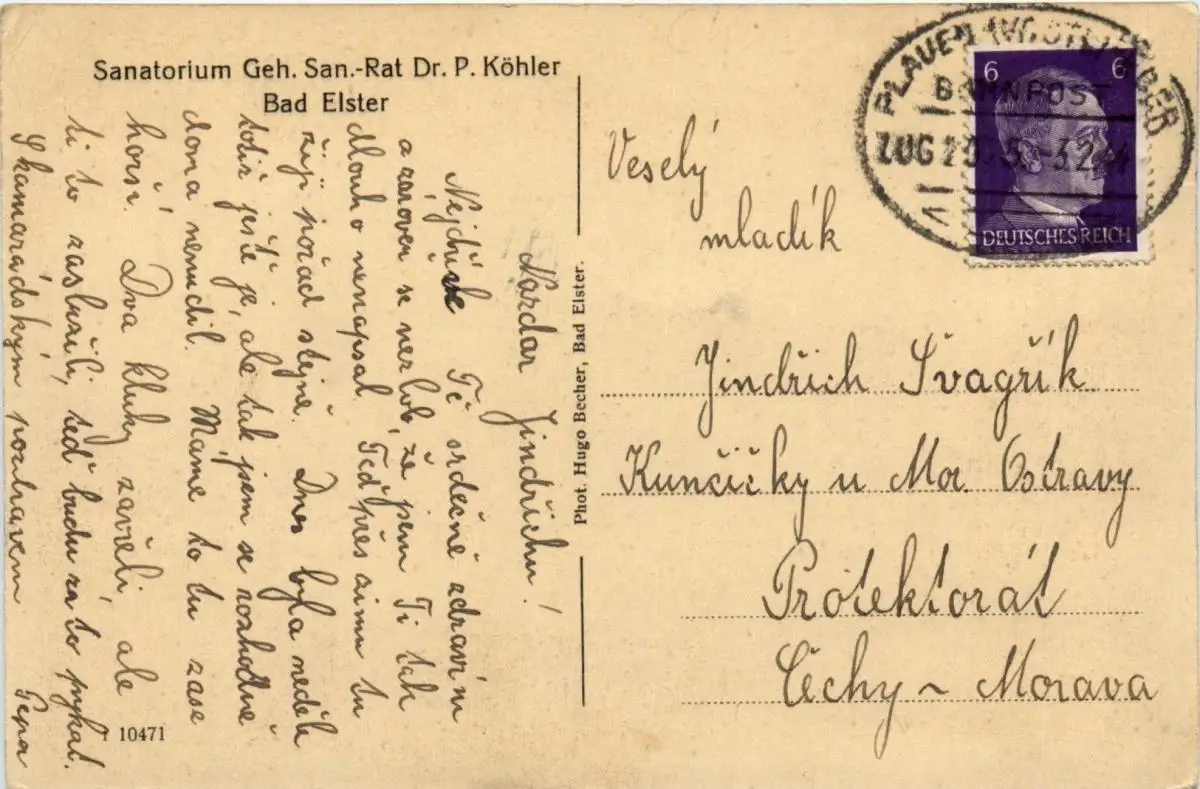 Sanatorium Geh. San.-Rat Dr. P. Köhler
Bad Elster
Nazdar Jindřichu!
Nejdříve Tě srdečně zdravím
a zároveň se nezlob, že jsem Ti tak
dlouho nenapsal. Teď přes zimu tu
žiji pořád stejně. Dnes byla neděle
totiž ještě je, ale tak jsem se rozhodně
doma nenudil. Máme to tu zase
horší. Dva kluky zavřeli, ale
ti to zasloužili, teď budu za to pykat.
S kamarádským pozdravem Pepa
10471
Phot. Hugo Becher, Bad Elster.
PLAUEN (VOGTL)
BAHNPOST
ZUG
6 6
DEUTSCHES REICH
Veselý
mladík
Jindřich Švagřík
Kunčičky u Mor. Ostravy
Protektorát
Čechy - Morava